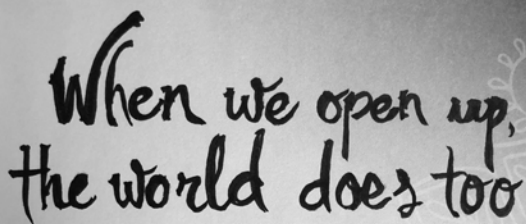 When we open up,
the world does too